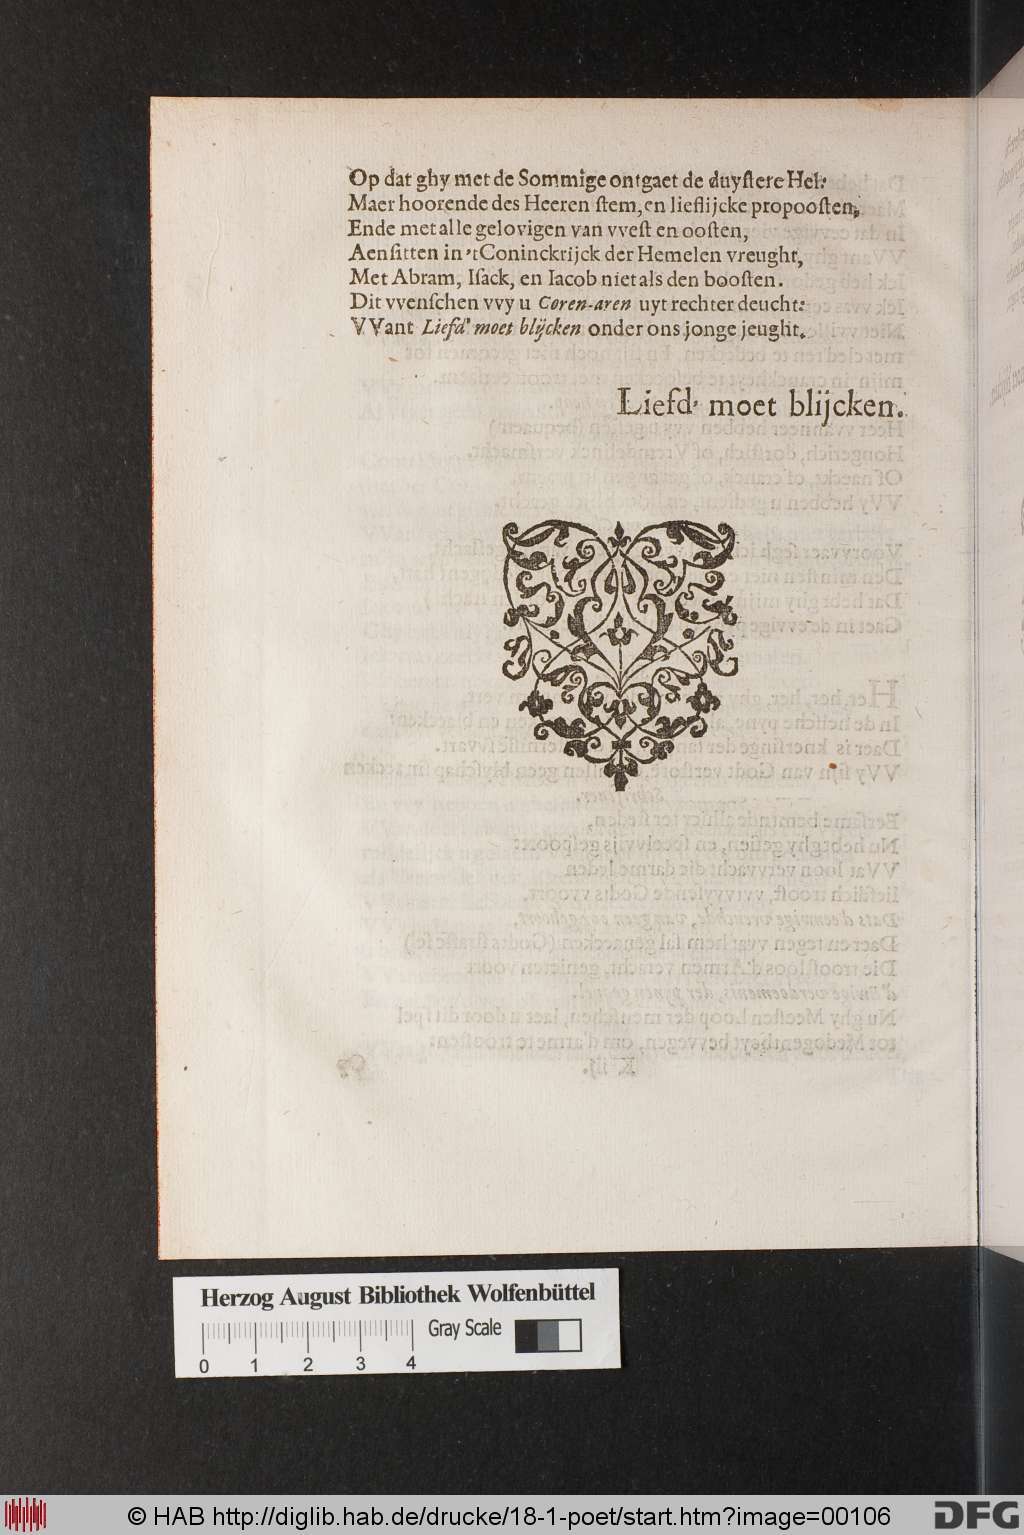 Op dat ghy met de Sommige ontgaet de duyſtere Hel:
Maer hoorende des Heeren ſtem, en lieflijcke propooſten,
Ende met alle gelovigen van vveſt en ooſten,
Aenſitten in 'tConinckrijck der Hemelen vreught,
Met Abram, Iſack, en Iacob niet als den booſten.
Dit vvenſchen vvy u Coren-aren uyt rechter deucht:
VVant Liefd' moet blijcken onder ons jonge jeught.
Liefd' moet blijcken.
Herzog August Bibliothek Wolfenbüttel
Gray Scale
0 1 2 3 4
© HAB http://diglib.hab.de/drucke/18-1-poet/start.htm?image=00106
DFG